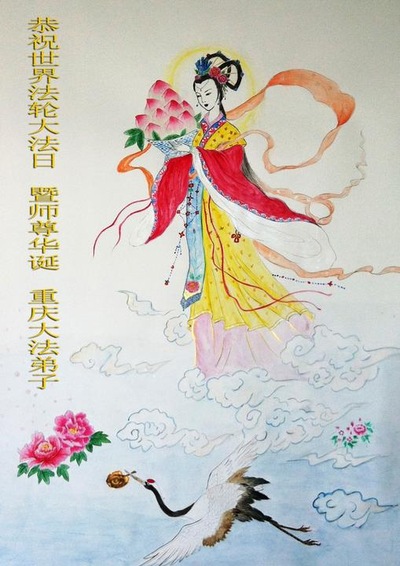 恭祝世界法轮大法日 暨师尊华诞 重庆大法弟子